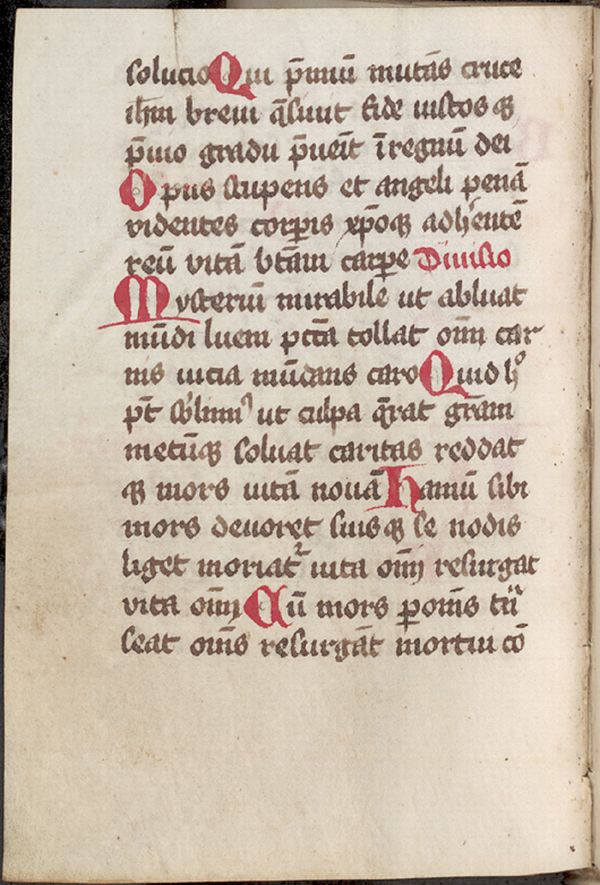 solucio Qui p̄miū mutās cruce
ih̄m breui q̄siuit fide iustos qꝫ
p̄uio gradu p̄ueīt ī regnū dei
Opus stupens et angeli penā
videntes corꝑis xp̄oqꝫ adh̓entē
reū vitā btāu carꝑe Diuisio
Mysteriū mirabile ut abluat
mūdi luem pctā tollat om̄ car
nis uicia mūdans caro Quid h°
pt̄ sb̓limi᾽ ut culpa q̄rat grām
metūqꝫ soluat caritas reddat
qꝫ mors uitā nouā Hamū sibi
mors deuoret suisqꝫ se nodis
liget moriatᷣ uita om̄ resurgat
vita om̄ Cū mors ꝑ om̄s tn̄
seat om̄s resurgāt mortui cō